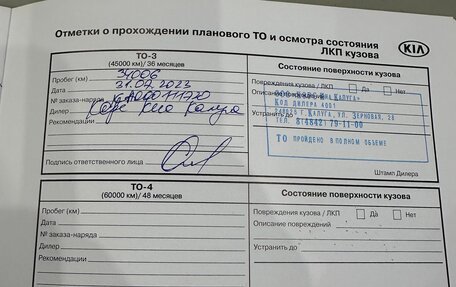 Отметки о прохождении планового ТО и осмотра состояния
ЛКП кузова
KIA
ТО-3
(45000 км)/ 36 месяцев
Состояние поверхности кузова
Пробег (км) 34006
Повреждения кузова / ЛКП Да Нет
Дата 31.07.2023
Описание повреждений
№ заказа-наряда
Дилер Киа Калуга
Устранить до
Рекомендации
КИА КАЛУГА"
КОД ДИЛЕРА
Г.КАЛУГА, УЛ. ЗЕРНОВАЯ, 28
ТЕЛ. 8(4842) 79-11-00
ТО ПРОЙДЕНО В ПОЛНОМ ОБЪЕМЕ
Подпись ответственного лица
Штамп Дилера
ТО-4
(60000 км)/ 48 месяцев
Состояние поверхности кузова
Пробег (км)
Повреждения кузова / ЛКП Да Нет
Дата
Описание повреждений
№ заказа-наряда
Дилер
Устранить до
Рекомендации